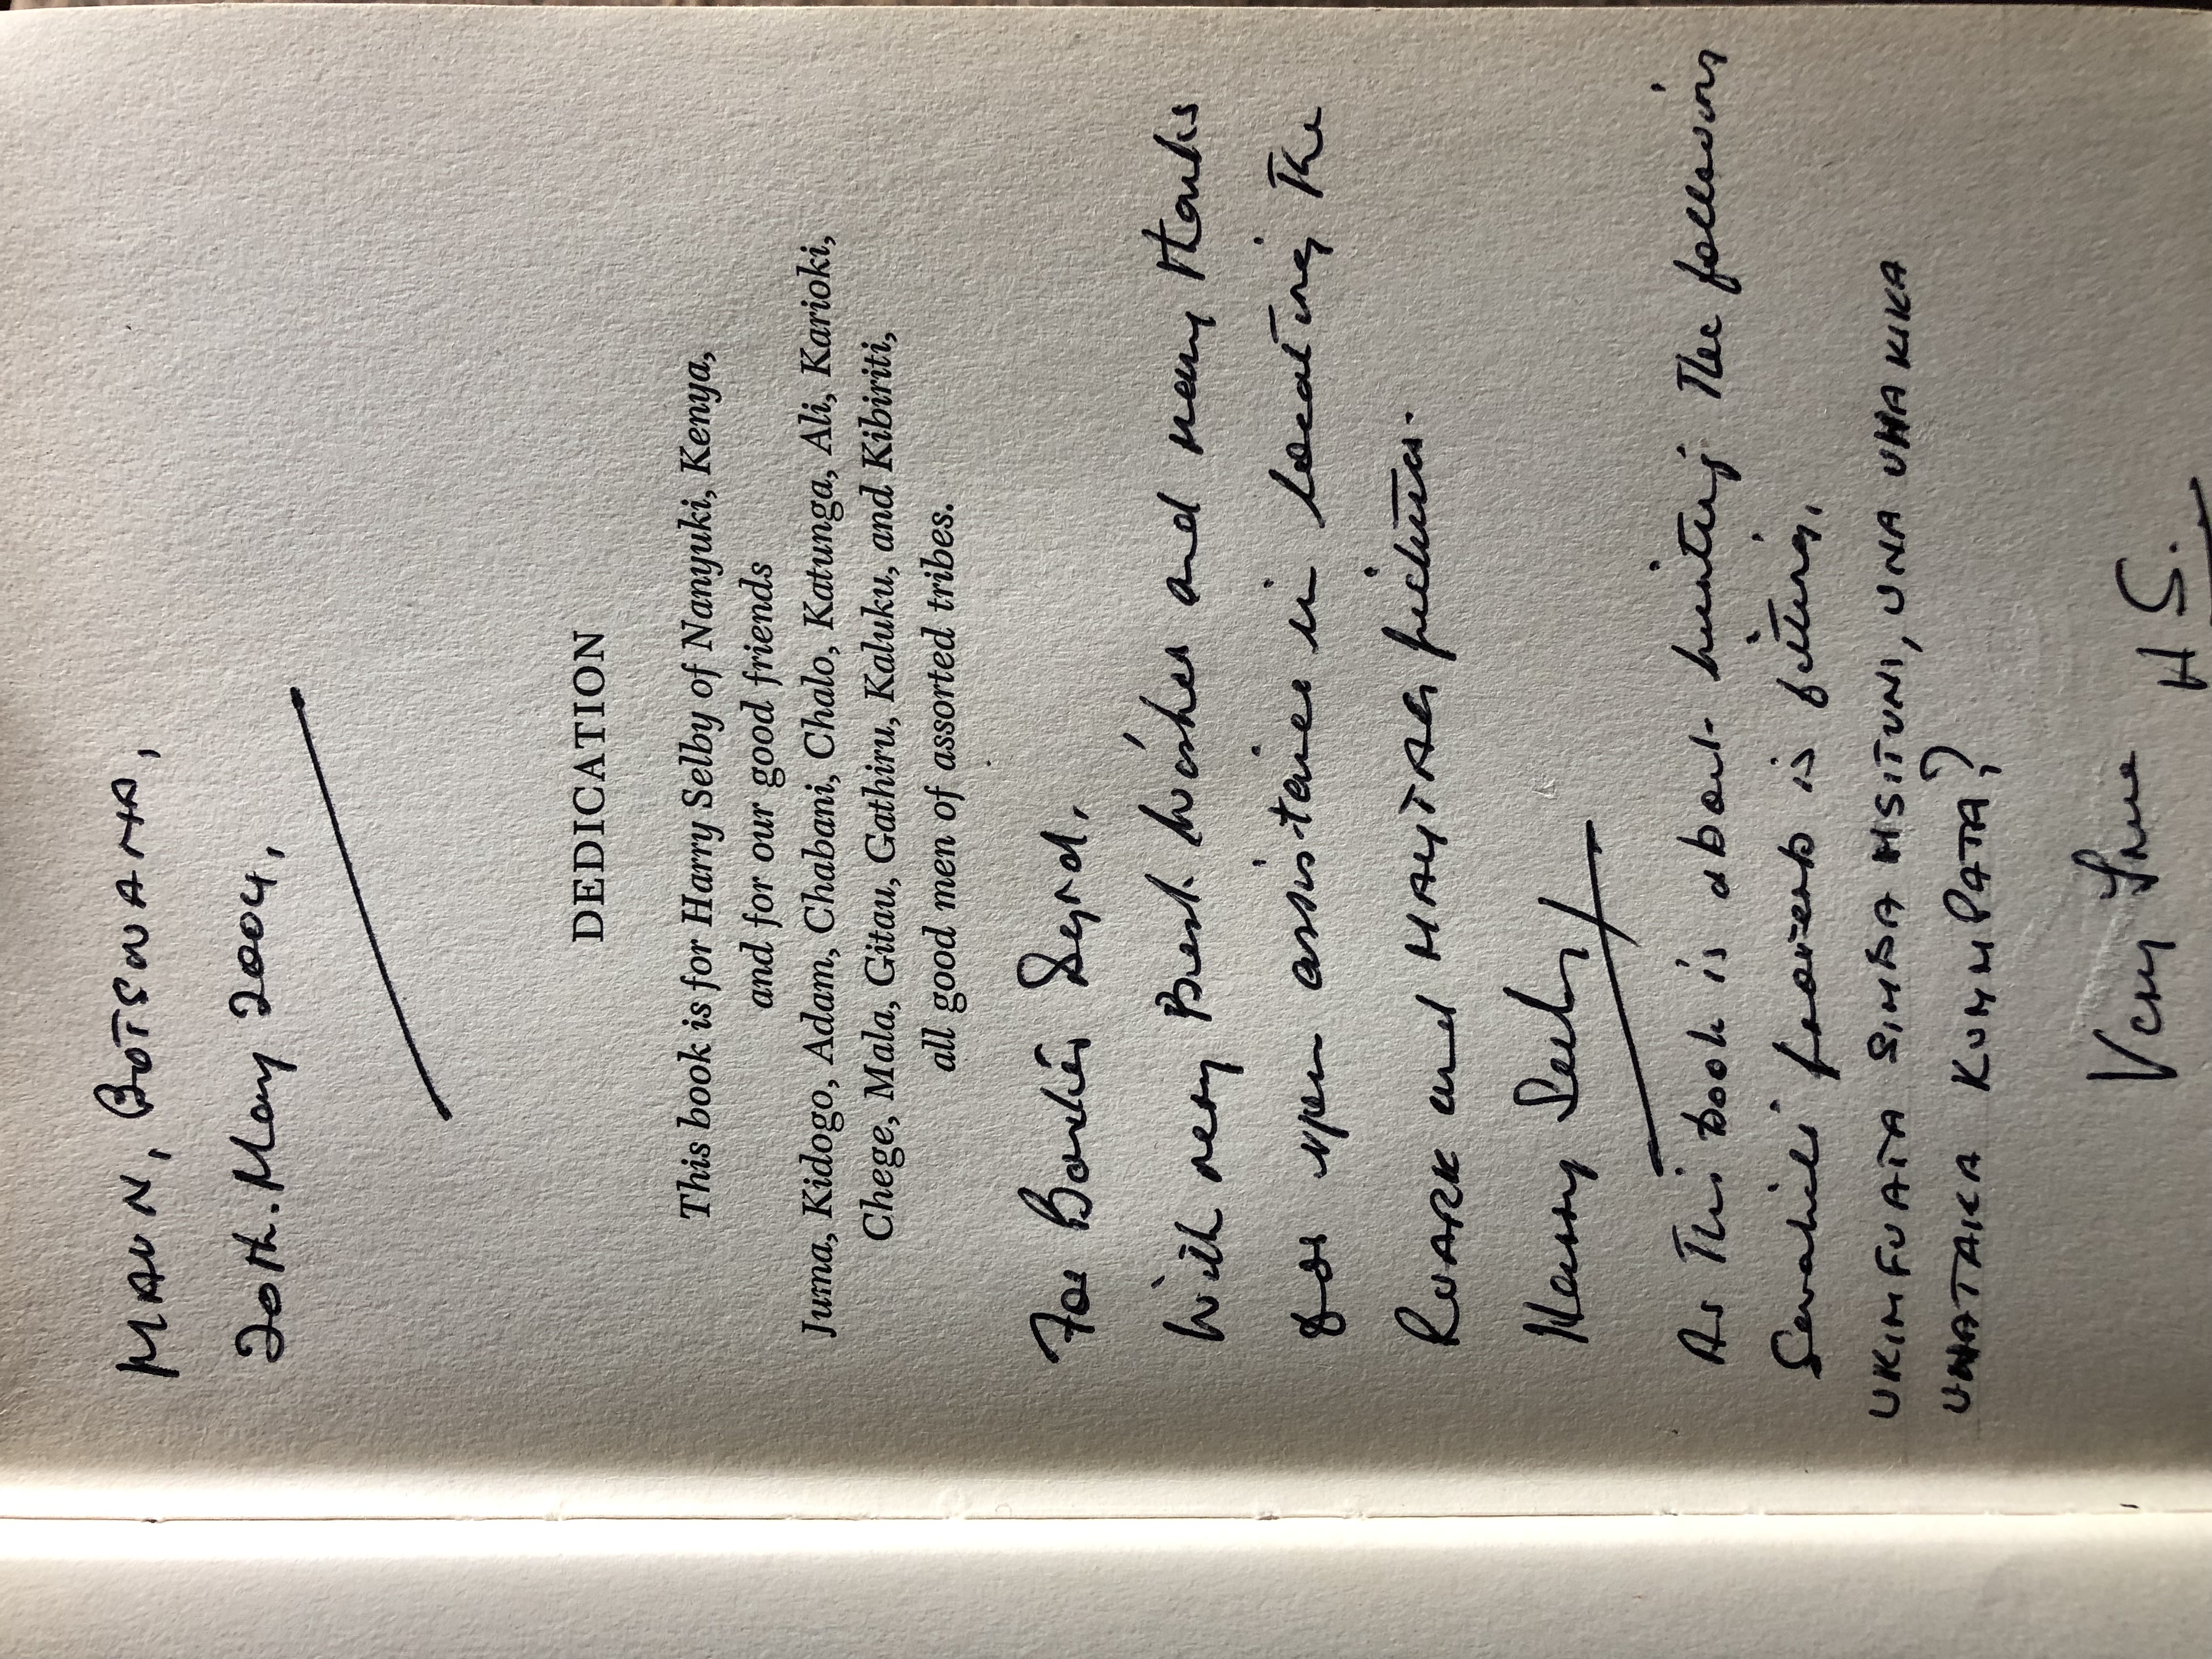 MAUN, BOTSWANA,
20th. May 2004,
DEDICATION
This book is for Harry Selby of Nanyuki, Kenya,
and for our good friends
Juma, Kidogo, Adam, Chabani, Chalo, Katunga, Ali, Karioki,
Chege, Mala, Gitau, Gathiru, Kaluku, and Kibiriti,
all good men of assorted tribes.
For
With very Best Wishes and many thanks
for your assistance in locating the
RUARK and MAYTAG pictures.
Harry Selby
As this book is about hunting the following
Swahili proverb is fitting,
UKIMFUATA SIMBA MSITUNI, UNA UHAKIKA
UNATAKA KUMMPATA?
Very True
H S.